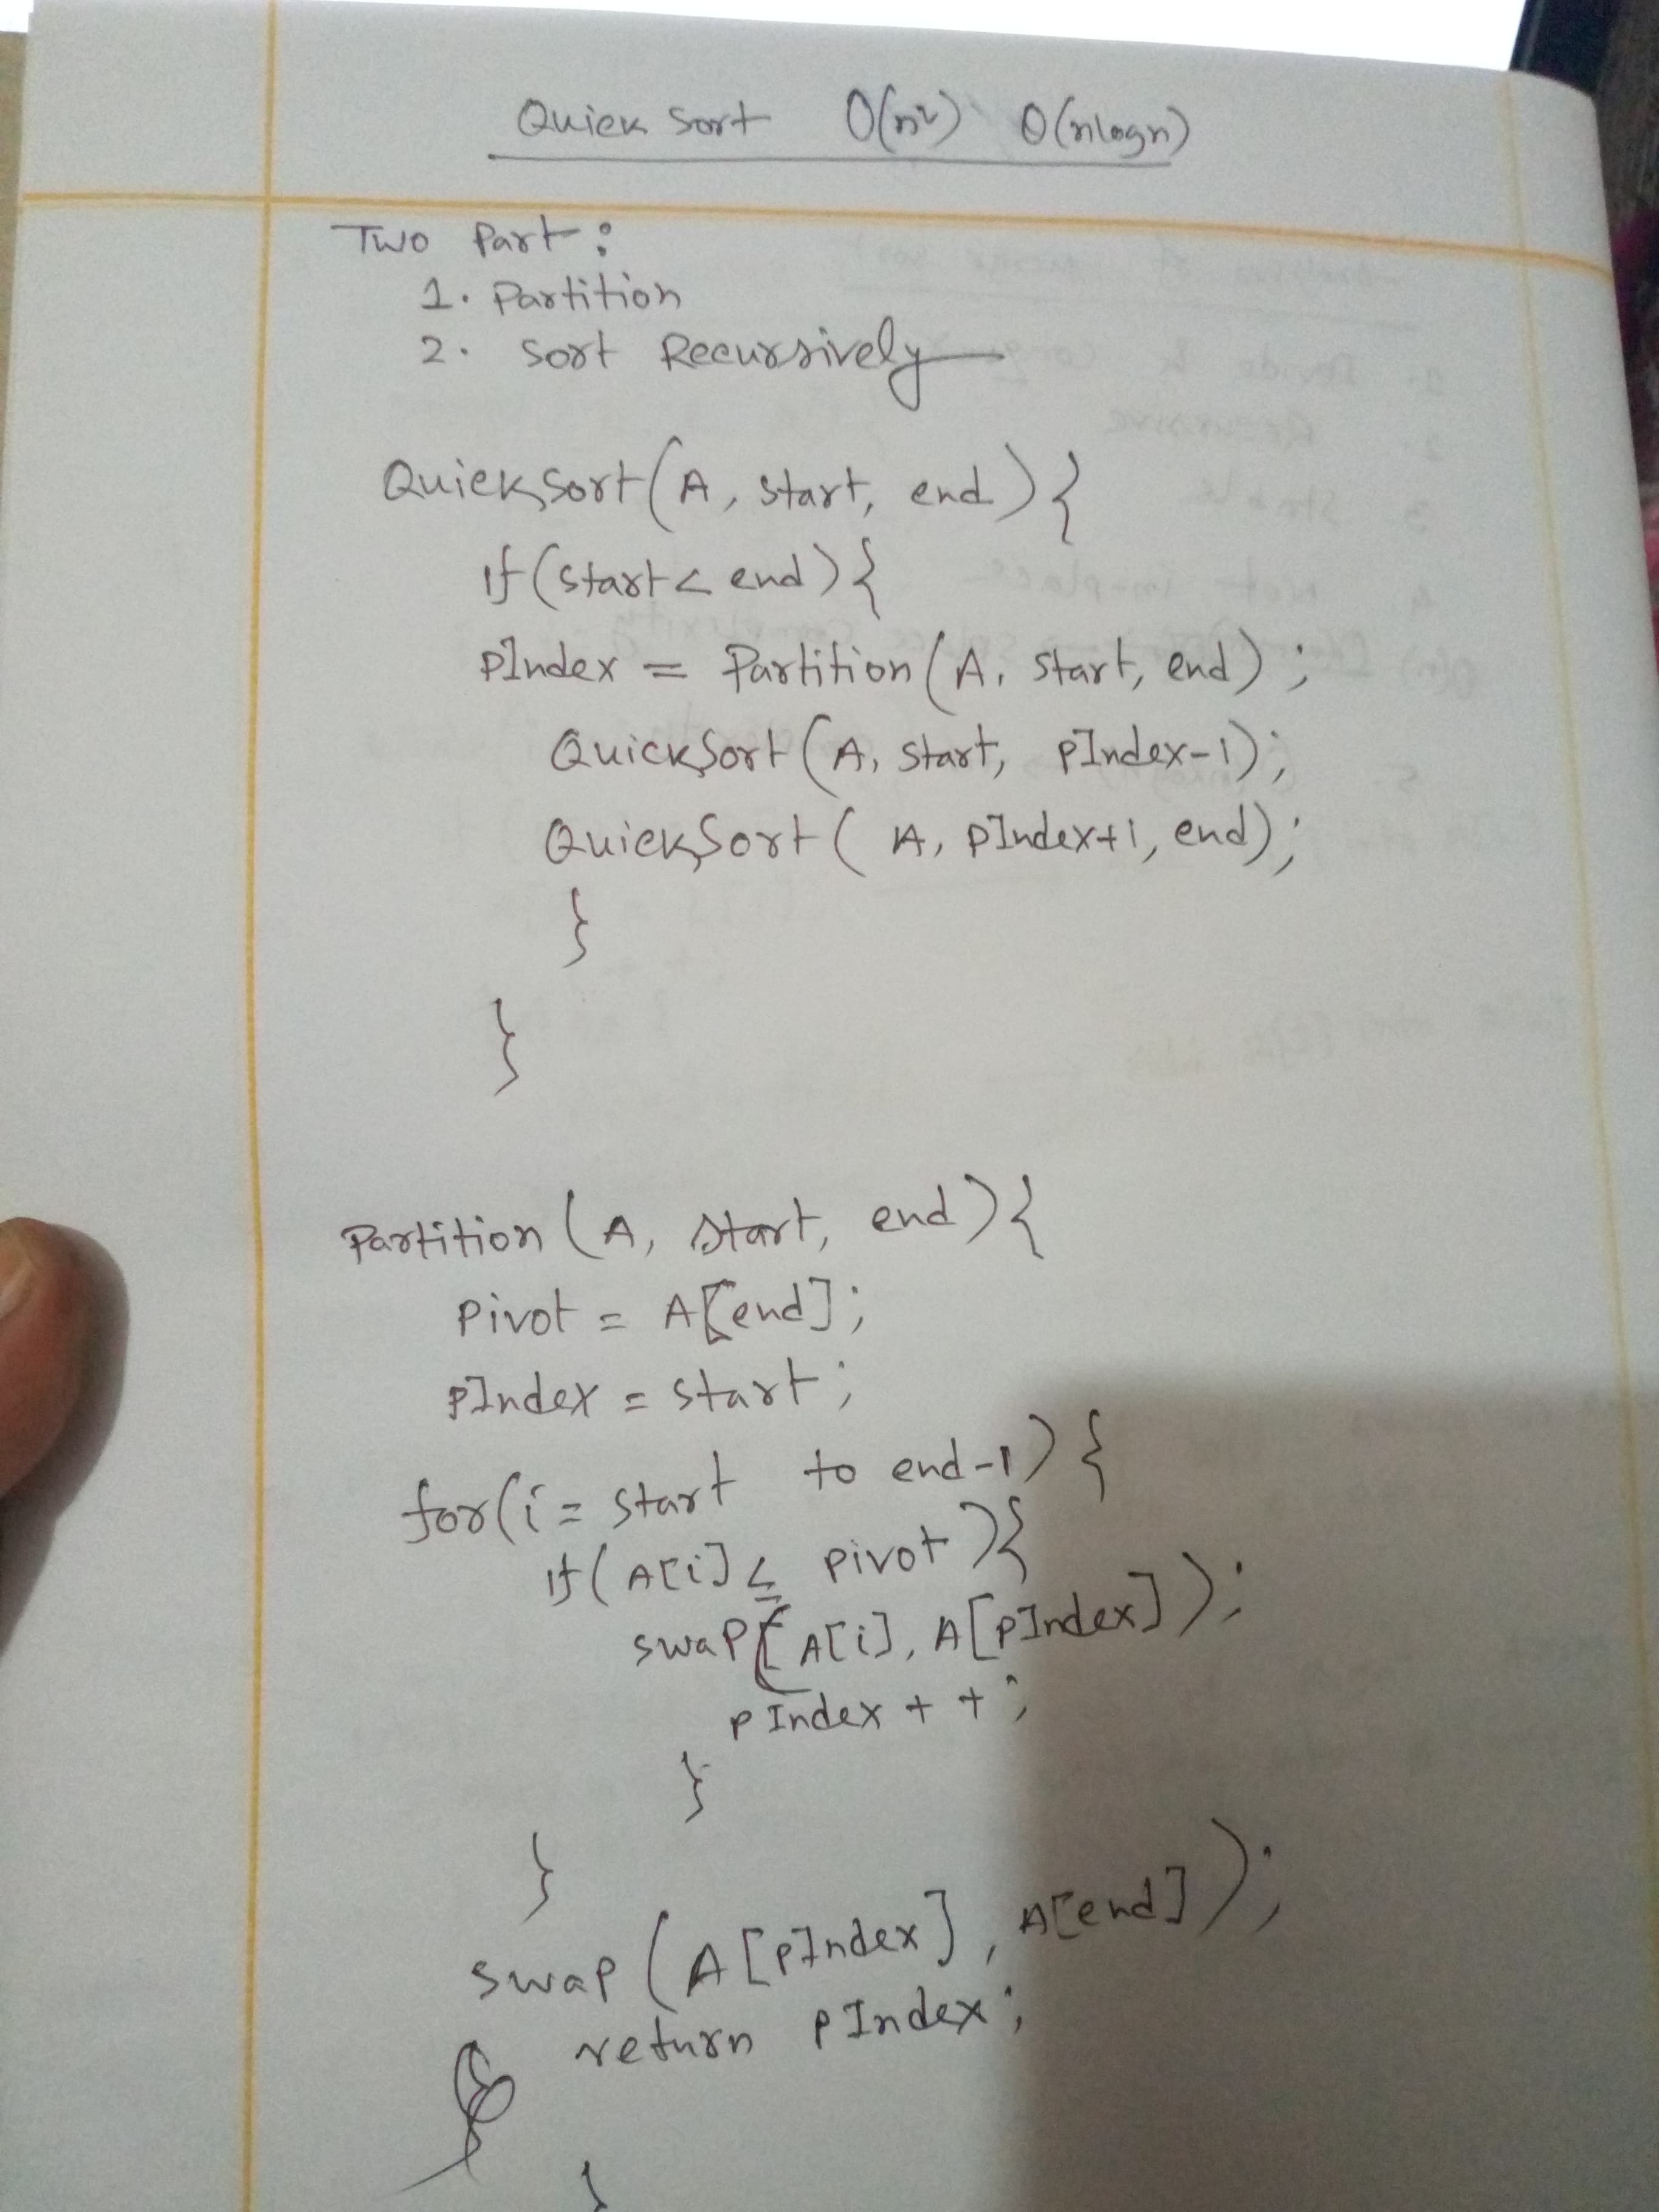 Quick Sort O(n²) θ(nlogn)
Two Part:
1. Partition
2. Sort Recursively
QuickSort(A, start, end){
if(start< end){
pIndex = Partition(A, start, end);
QuickSort(A, start, pIndex-1);
QuickSort( A, pIndex+1, end);
}
}
Partition(A, start, end){
pivot = A[end];
pIndex = start;
for(i = start to end-1){
if( A[i] ≤ pivot){
swap( A[i], A[pIndex]);
pIndex + +;
}
}
swap(A[pIndex], A[end]);
return pIndex;
}